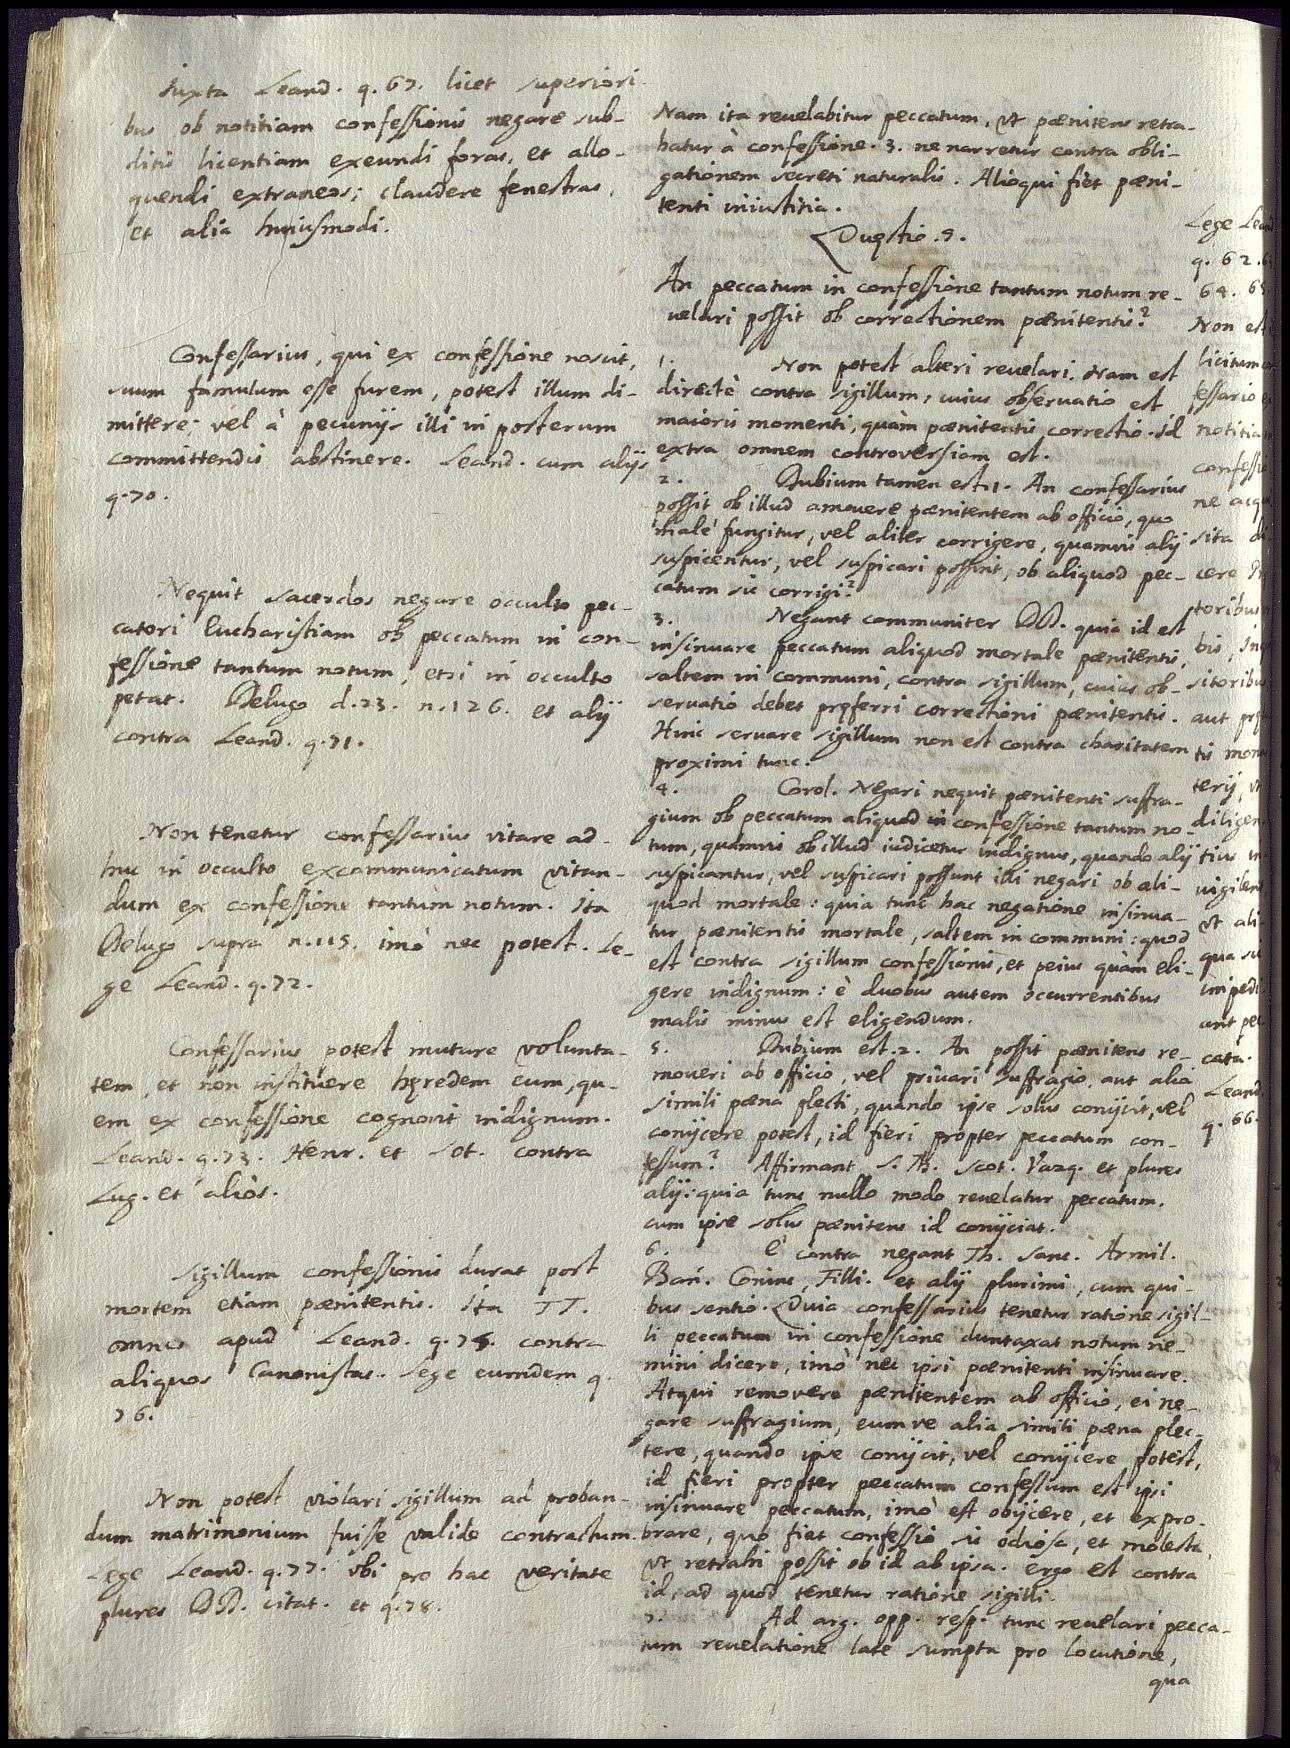 Iuxta Leand. q. 67. licet superiori
bus ob notitiam confessionis negare sub-
ditis licentiam exeundi foras, et allo-
quendi extraneos; claudere fenestras,
et alia huiusmodi.
Confessarius, qui ex confessione noscit,
suum famulum esse furem, potest illum di-
mittere; vel à pecunijs illi in posterum
committendis abstinere. Leand. cum alijs
q. 70.
Nequit sacerdos negare occulto pec-
catori Eucharistiam ob peccatum in con-
fessione tantum notum, etsi in occulto
petat. Delugo d. 23. n. 126. et alij
contra Leand. q. 71.
Non tenetur confessarius vitare ad-
huc in occulto excommunicatum vitan-
dum ex confessione tantùm notum. Ita
Delugo supra n. 115. imò nec potest. Le-
ge Leand. q. 72.
Confessarius potest mutare volunta-
tem, et non instituere hęredem eum, qu-
em ex confessione cognovit indignum.
Leand. q. 73. Henr. et Sot. contra
Lug. et aliòs.
Sigillum confessionis durat post
mortem etiam pænitentis. Ita TT.
omnes apud Leand. q. 75. contra
aliquos Canonistas. Lege eumdem q.
76.
Non potest violari sigillum ad proban-
dum matrimonium fuisse valide contractum.
Lege Leand. q. 77. ubi pro hac veritate
plures DD. citat. et q. 78.
Nam ita reuelabitur peccatum, vt pænitens retra-
hatur à confessione. 3. ne narretur contra obli-
gationem secreti naturalis. Alioqui fiet pæni-
tenti iniustitia.
Quęstio. 9.
An peccatum in confessione tantum notum re-
uelari possit ob correctionem pænitentis?
1. Non potest alteri reuelari. Nam est
directè contra sigillum, cuius obseruatio est
maioris momenti, quàm pænitentis correctio. Id
extra omnem controversiam est.
2. Dubium tamen est. 1. An confessarius
possit ob illud amouere pænitentem ab officio, quo
malè fungitur, vel aliter corrigere, quamuis alij
suspicentur, vel suspicari possint, ob aliquod pec-
catum sic corrigi?
3. Negant communiter DD. quia id est
insinuare peccatum aliquod mortale pænitentis,
saltem in communi, contra sigillum, cuius ob-
seruatio debet pręferri correctioni pænitentis.
Hinc seruare sigillum non est contra charitatem
proximi tunc.
4. Corol. Negari nequit pænitenti suffra-
gium ob peccatum aliquod in confessione tantum no-
tum, quamuis ob illud iudicetur indignus, quando alij
suspicantur, vel suspicari possunt illi negari ob ali-
quod mortale: quia tunc hac negatione insinua-
tur pænitentis mortale, saltem in communi: quod
est contra sigillum confessionis, et peius quàm eli-
gere indignum: è duobus autem occurrentibus
malis minus est eligendum.
5. Dubium est. 2. An possit pænitens re-
moueri ab officio, vel priuari suffragio, aut alia
simili pæna plecti, quando ipse solus conijcit, vel
conijcere potest, id fieri propter peccatum con-
fessum? Affirmant S. Th. Scot. Vazq. et plures
alij: quia tunc nullo modo reuelatur peccatum.
cum ipse solus pænitens id conijciat.
6. E contra negant Th. Sanc. Armil.
Bań. Coninc, Filli. et alij plurimi, cum qui-
bus sentio. Quia confessarius tenetur ratione sigil-
li peccatum in confessione duntaxat notum ne-
mini dicere, imò nec ipsi pænitenti insinuare.
Atqui remouere pænitentem ab officio, ei ne-
gare suffragium, eum ve alia simili pæna plec-
tere, quando ipse conijcit, vel conijcere potest,
id fieri propter peccatum confessum est ipsi
insinuare peccatum, imò est obijcere, et expro-
brare, quo fiet confessio sic odiosa, et molesta,
vt retrahi possit ob id ab ipsa. Ergo est contra
id, ad quod tenetur ratione sigilli.
7. Ad arg. opp. resp. tunc reuelari pecca-
tum reuelatione late sumpta pro locutione,
qua
Lege Leand
q. 62.
64. 65
Non est
licitum
fessario
notitia
confessio
ne acqui
sita di
cere
toribus
bis,
sitoribus
aut
tis mona
terij, vt
diligen
tius in
vigilent
vt ali-
qua
impedi
ant pec
cata.
Leand.
q. 66.